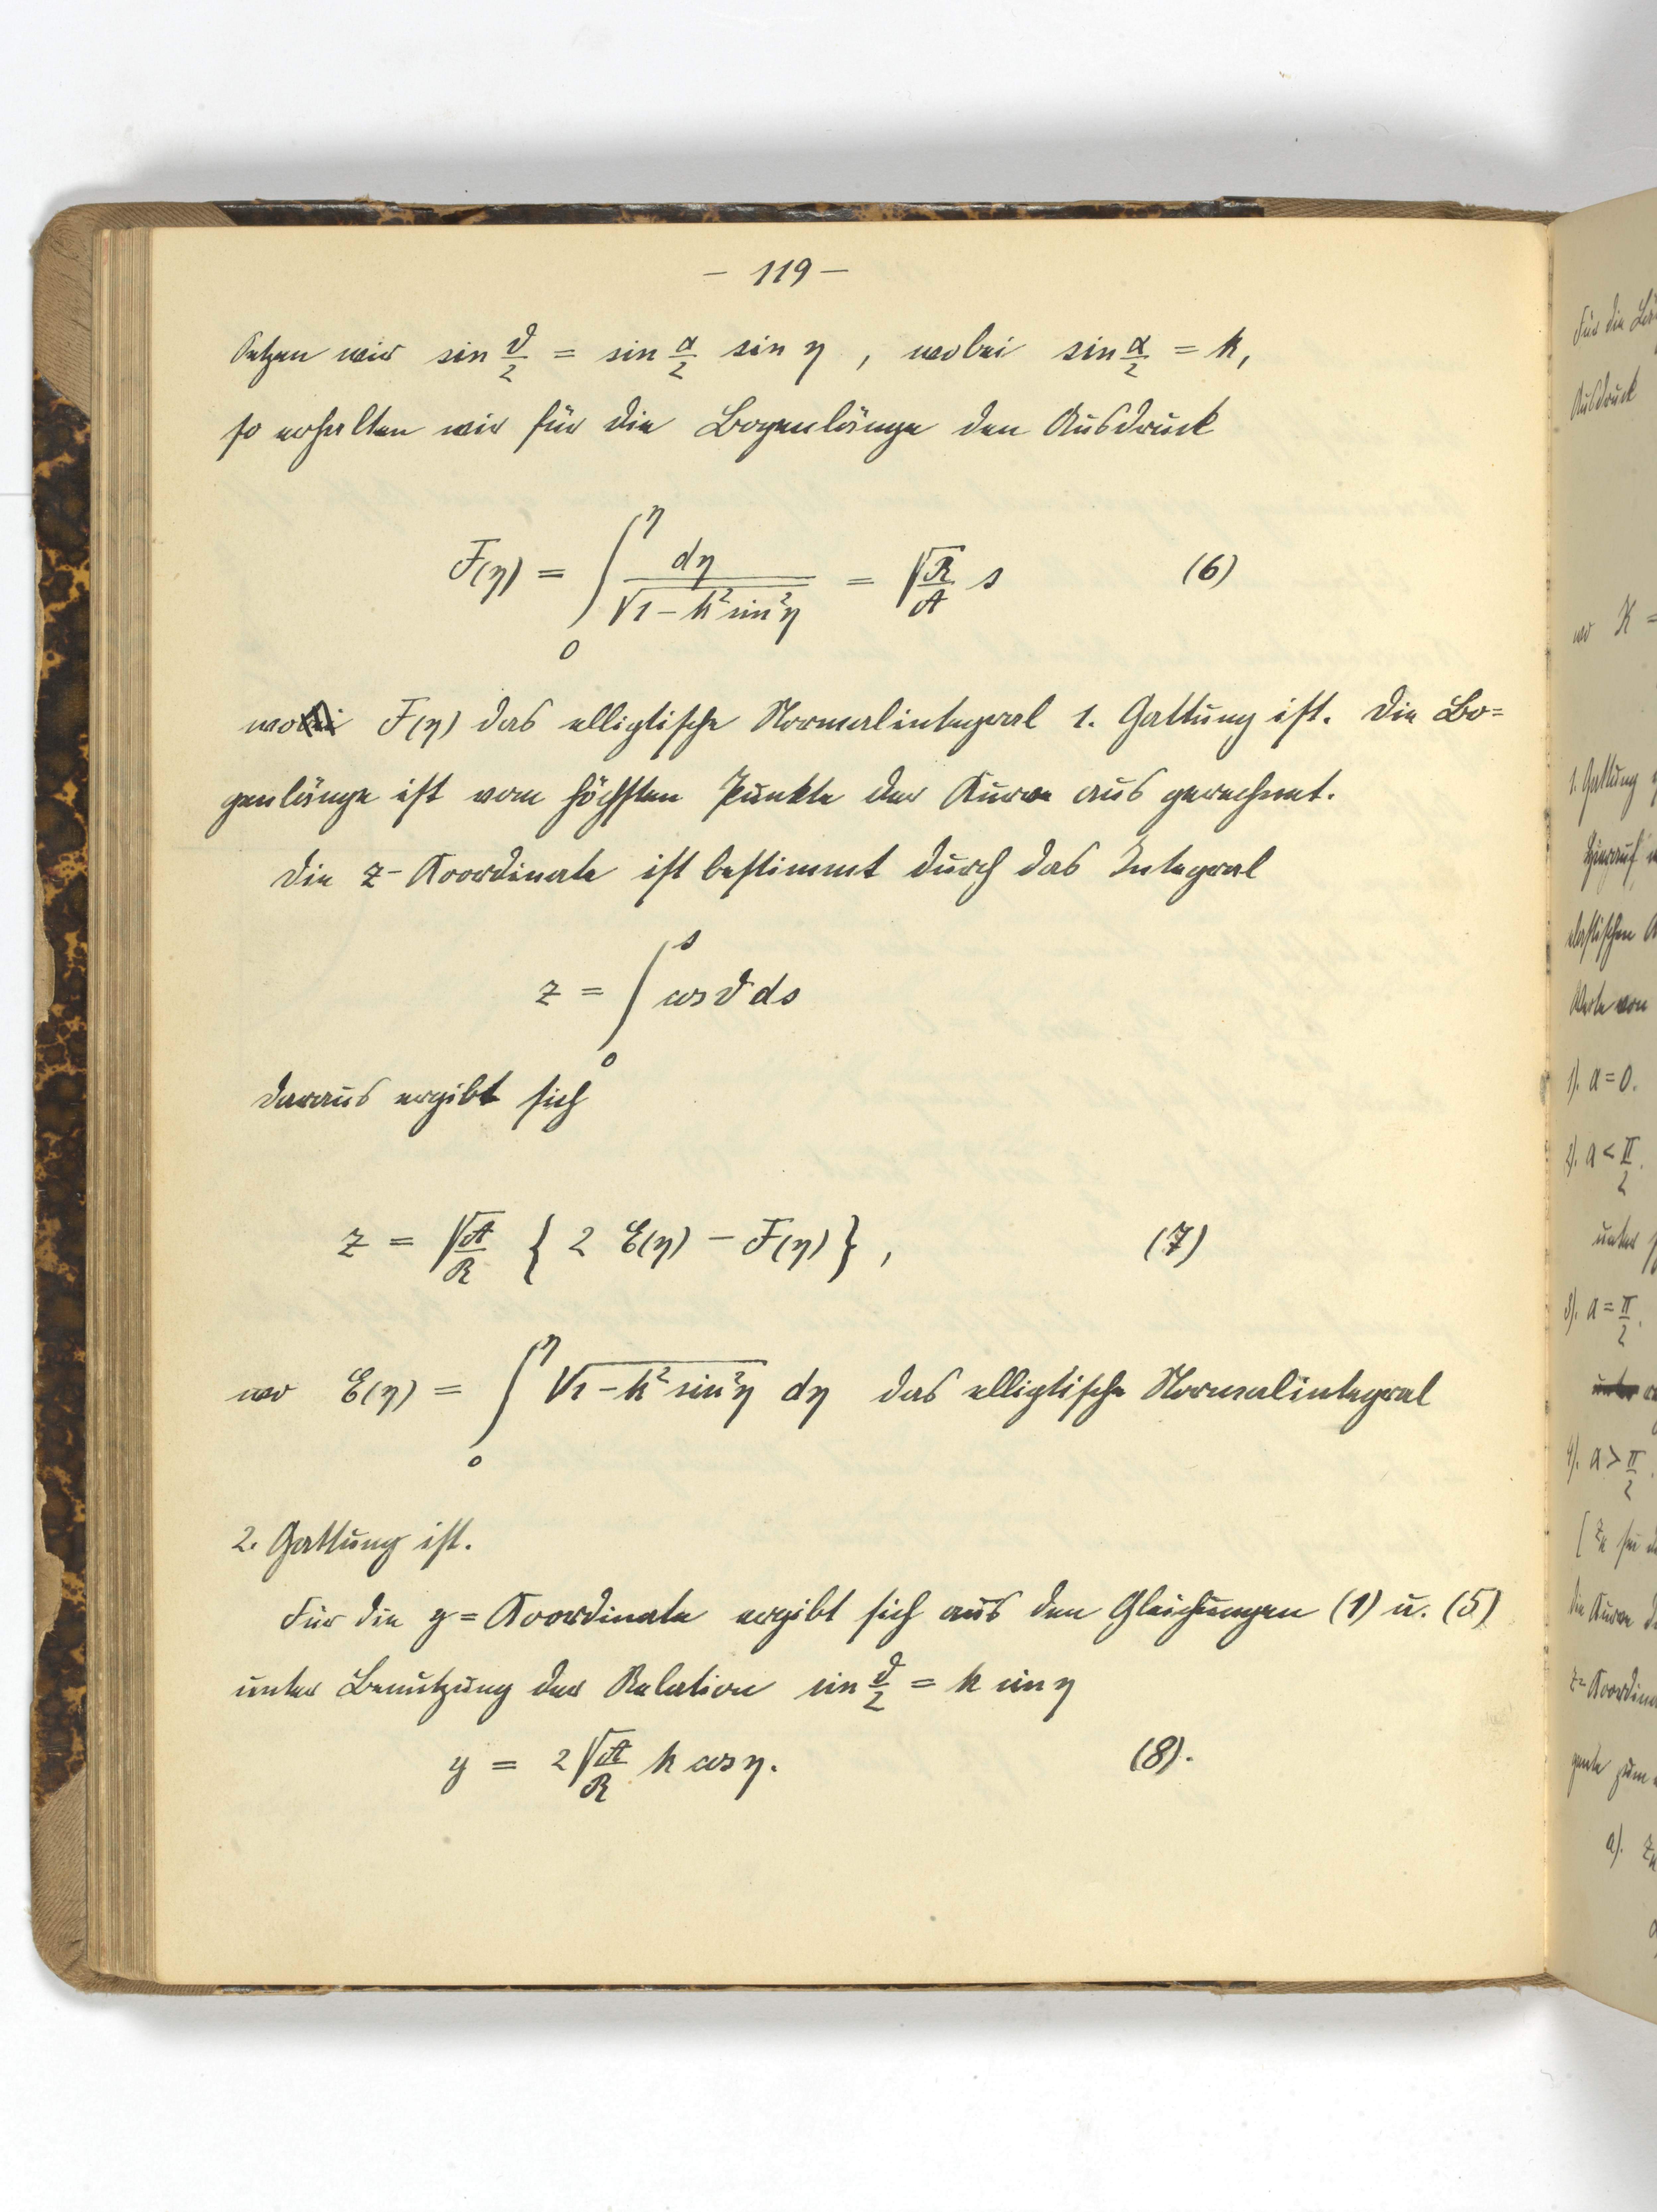 – 119 –
Setzen wir sin ϑ/2 = sin α/2 sin η , wobei sin α/2 = k,
so erhalten wir für die Bogenlänge den Ausdruck
F(η) = ∫₀^η dη / √(1 – k² sin² η) = √(R/A) s (6)
wo F(η) das elliptische Normalintegral 1. Gattung ist. Die Bo=
genlänge ist vom höchsten Punkte der Kurve aus gerechnet.
Die z- Koordinate ist bestimmt durch das Integral
z = ∫₀^s cos ϑ ds
daraus ergibt sich
z = √(A/R) { 2 E(η) – F(η) } , (7)
wo E(η) = ∫₀^η √(1 – k² sin² η) dη das elliptische Normalintegral
2. Gattung ist.
Für die y = Koordinate ergibt sich aus den Gleichungen (1) u. (5)
unter Benutzung der Relation sin ϑ/2 = k sin η
y = 2 √(A/R) k cos η. (8).
Für die
Ausdruck
wo K =
1. Gattung
Hierauf
elastischen
Werte von
1). α = 0.
2). α < π/2.
unter
3). α = π/2.
4). α > π/2.
[ zₖ sei
die Kurve
z= Koordina
gente zum
a).